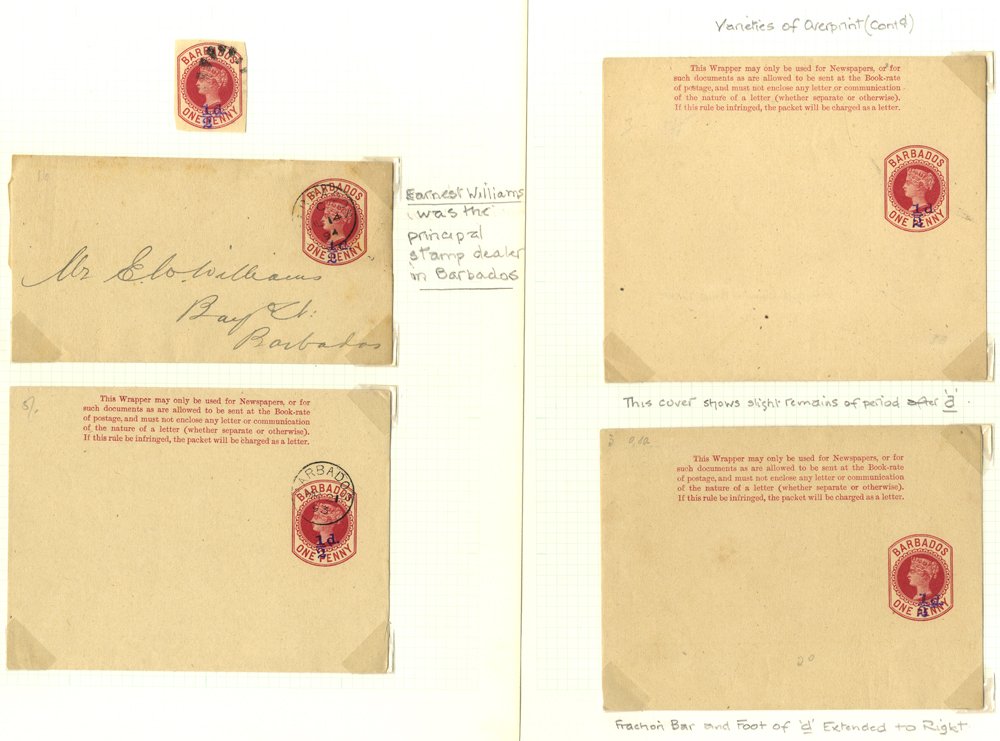 BARBADOS
½d
ONE PENNY
BARBADOS
14
½d
ONE PENNY
Mr E. W. Williams
Bay St:
Barbados
Earnest Williams
was the
principal
stamp dealer
in Barbados
5/.
This Wrapper may only be used for Newspapers, or for
such documents as are allowed to be sent at the Book-rate
of postage, and must not enclose any letter or communication
of the nature of a letter (whether separate or otherwise).
If this rule be infringed, the packet will be charged as a letter.
BARBADOS
BARBADOS
½d.
ONE PENNY
Varieties of Overprint (Contd)
This Wrapper may only be used for Newspapers, or for
such documents as are allowed to be sent at the Book-rate
of postage, and must not enclose any letter or communication
of the nature of a letter (whether separate or otherwise).
If this rule be infringed, the packet will be charged as a letter.
BARBADOS
½d
ONE PENNY
This cover shows slight remains of period after 'd'.
This Wrapper may only be used for Newspapers, or for
such documents as are allowed to be sent at the Book-rate
of postage, and must not enclose any letter or communication
of the nature of a letter (whether separate or otherwise).
If this rule be infringed, the packet will be charged as a letter.
BARBADOS
½d
ONE PENNY
20
Fraction Bar and Foot of 'd' Extended to Right